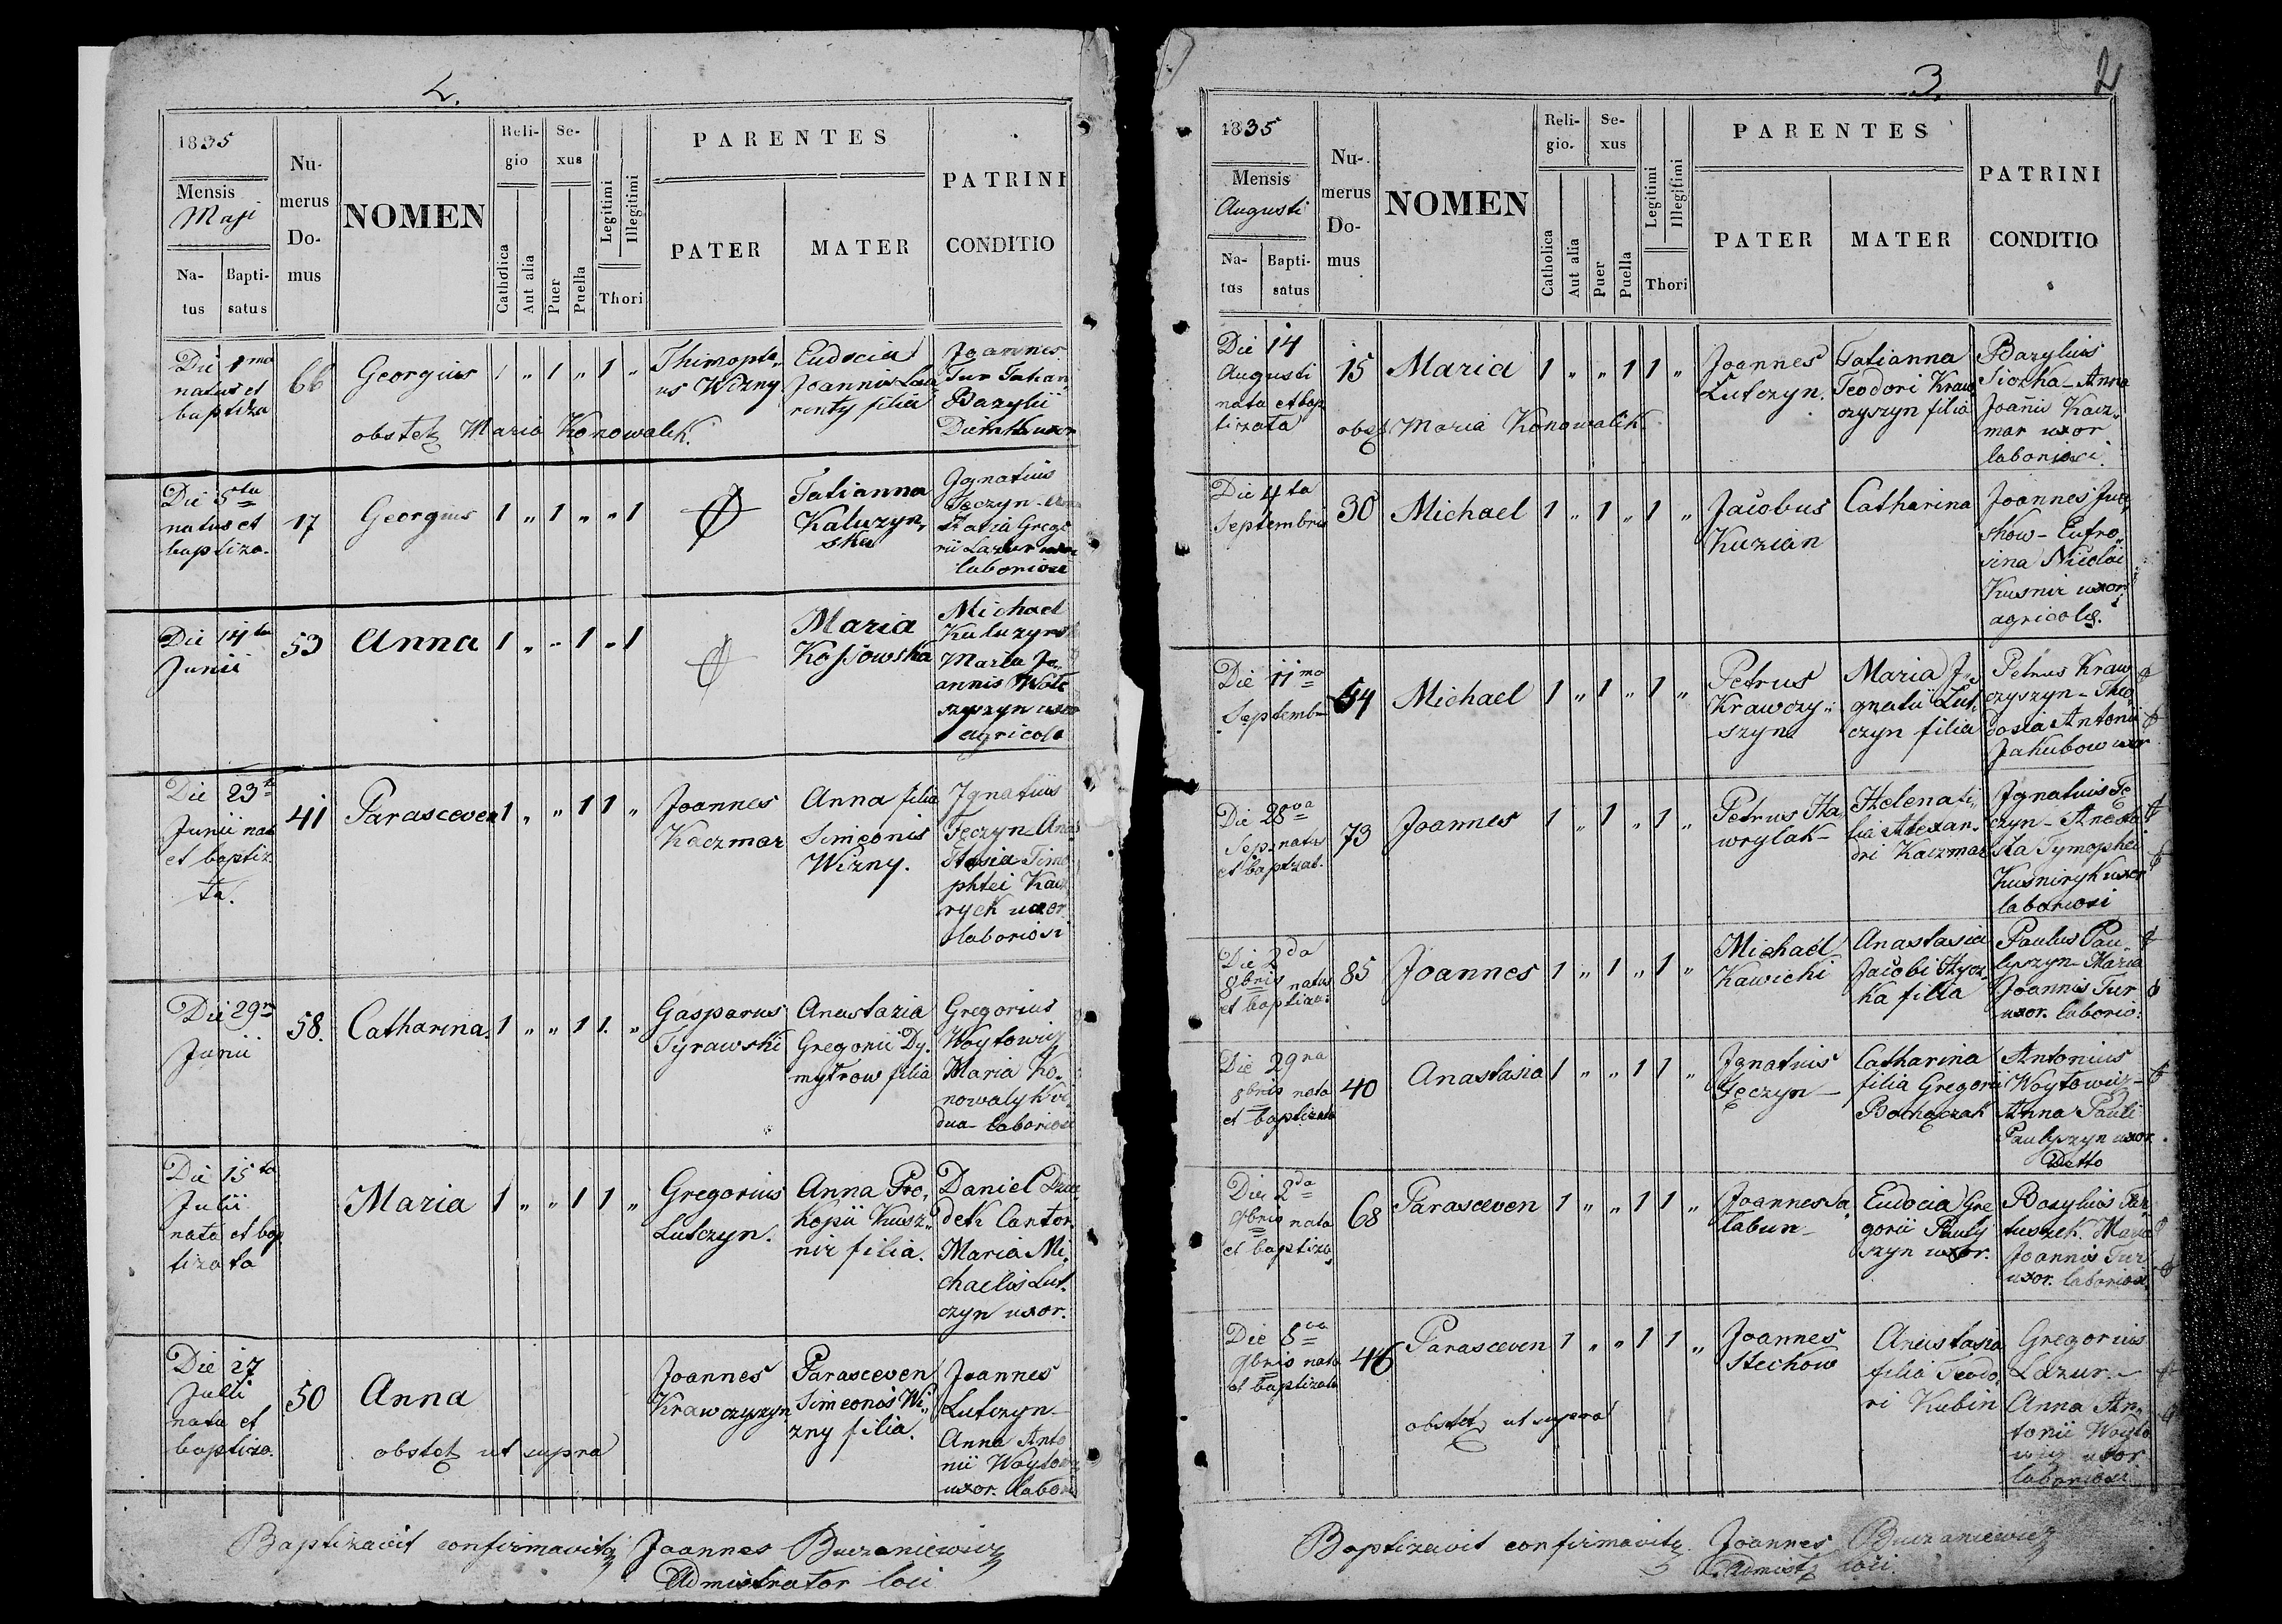 2.
1835
Mensis
Maji
Na-
tus
Bapti-
satus
Nu-
merus
Do-
mus
NOMEN
Reli-
gio
Catholica
Aut alia
Se-
xus
Puer
Puella
Legitimi
Illegitimi
Thori
PARENTES
PATER
MATER
PATRINI
CONDITIO
Die 1mo
natus et
baptiza
66
Georgius
1 „ 1 „ 1 „
Thimopte„
us Wizny
Eudocia
Joannis
filia
Joannes
Tur
Bazylii
uxor
obstetz Maria Konowalik.
Die 5ta
natus et
baptiza.
17
Georgius
1 „ 1 „ „ 1
Tatianna
Kaluzyn„
ska
Jgnatius
Teczyn
Grego
rii Lazur uxor
laboriosi
Die 14ta
Junii
53
Anna
1 „ „ 1 „ 1
Maria
Kossowska
Michael
Kaluzyns
Maria Jo„
annis
uxor
agricola
Die 23
Junii nat
et baptiz
ta.
41
Parasceven
1 „ „ 1 1 „
Joannes
Kaczmar
Anna filia
Simeonis
Wizny.
Jgnatius
Teczyn Ana
stasia Timo
phtei
uxor
laboriosi
Die 29na
Junii
58.
Catharina.
1 „ „ 1 1. „
Gasparus
Tyrawski
Anastazia
Gregorii Dy.
mytrow filia
Gregorius
Woytowicz
Maria Ko.
nowalyk vi
dua laboriosi
Die 15ta
Julii
nata et bap
tizata
Maria
1 „ „ 1 1 „
Gregorius
Lutczyn.
Anna Pro„
kopii Kusz„
nir filia.
Daniel
Cantor
Maria Mi.
chaelis Lut.
czyn uxor.
Die 27
Julii
nata et
baptiza.
50
Anna
Joannes
Krawczyszyn
Parasceven
Simeonis Wi„
zny filia.
Joannes
Lutczyn
Anna Anto
nii Woytowicz
uxor. labori
obstetz ut supra
Baptizavit confirmavitq Joannes Buczaniewicz
Admistrator loci
3.
2
1835
Mensis
Augusti
Na-
tus
Bapti-
satus
Nu-
merus
Do-
mus
NOMEN
Reli-
gio.
Catholica
Aut alia
Se-
xus
Puer
Puella
Legitimi
Illegitimi
Thori
PARENTES
PATER
MATER
PATRINI
CONDITIO
Die 14
Augusti
nata et bap
tizata
15
Maria
1 „ „ 1 1 „
Joannes
Lutczyn.
Tatianna
Teodori Kraw
czyszyn filia
Bazylius
Anna
Joannis Kacz„
mar uxor
laboriosi.
obstz Maria Konowalik.
Die 4ta
Septembris
30
Michael
1 „ 1 „ 1 „
Jacobus
Kuzian
Catharina
Joannes
Eufro„
sina Nicolai
Kusnir uxor
agricolae.
Die 11mo
Septemb
54
Michael
1 „ 1 „ 1 „
Petrus
Krawczy„
szyn
Maria J„
gnatii Lut„
czyn filia
Petrus Kraw
czyszyn Theo
dosia Antonii
Jakubow uxor
Die 28va
Sep. natus
et baptizat.
73
Joannes
1 „ 1 „ 1 „
Petrus Ha
wrylak
Helena fi„
lia Alexan„
dri Kaczmar
Jgnatius Te
czyn Anasta
sia Tymophei
Kusniryk uxor
laboriosi
Die 2da
8bris natus
et baptiza.
85
Joannes
1 „ 1 „ 1 „
Michael
Kawichi
Anastasia
Jacobi
filia
Paulus Pau„
lyszyn Maria
Joannis Tur
uxor. laborio.
Die 29na
8bris nata
et baptizata
40
Anastasia
1 „ „ 1 1 „
Jgnatius
Teczyn
Catharina
filia Gregorii
Antonius
Woytowicz
Anna Pauli
Paulyszyn uxor
Detto
Die 2da
9bris nata
et baptiza
68
Parasceven
1 „ „ 1 1 „
Joannes Sa
labun
Eudocia Gre
gorii Pauly
szyn uxor.
Bazylius
Maria
Joannis Tur
uxor. laboriosi.
Die 8va
9bris nata
et baptizata
46
Parasceven
1 „ „ 1 1 „
Joannes
Stechow
Anastasia
filia Teodo
ri Kubin
Gregorius
Lazur
Anna An„
tonii Woyto
wicz uxor
laboriosi
obstetz ut supra
Baptizavit confirmavitq Joannes Buczaniewicz
Admistz loci.